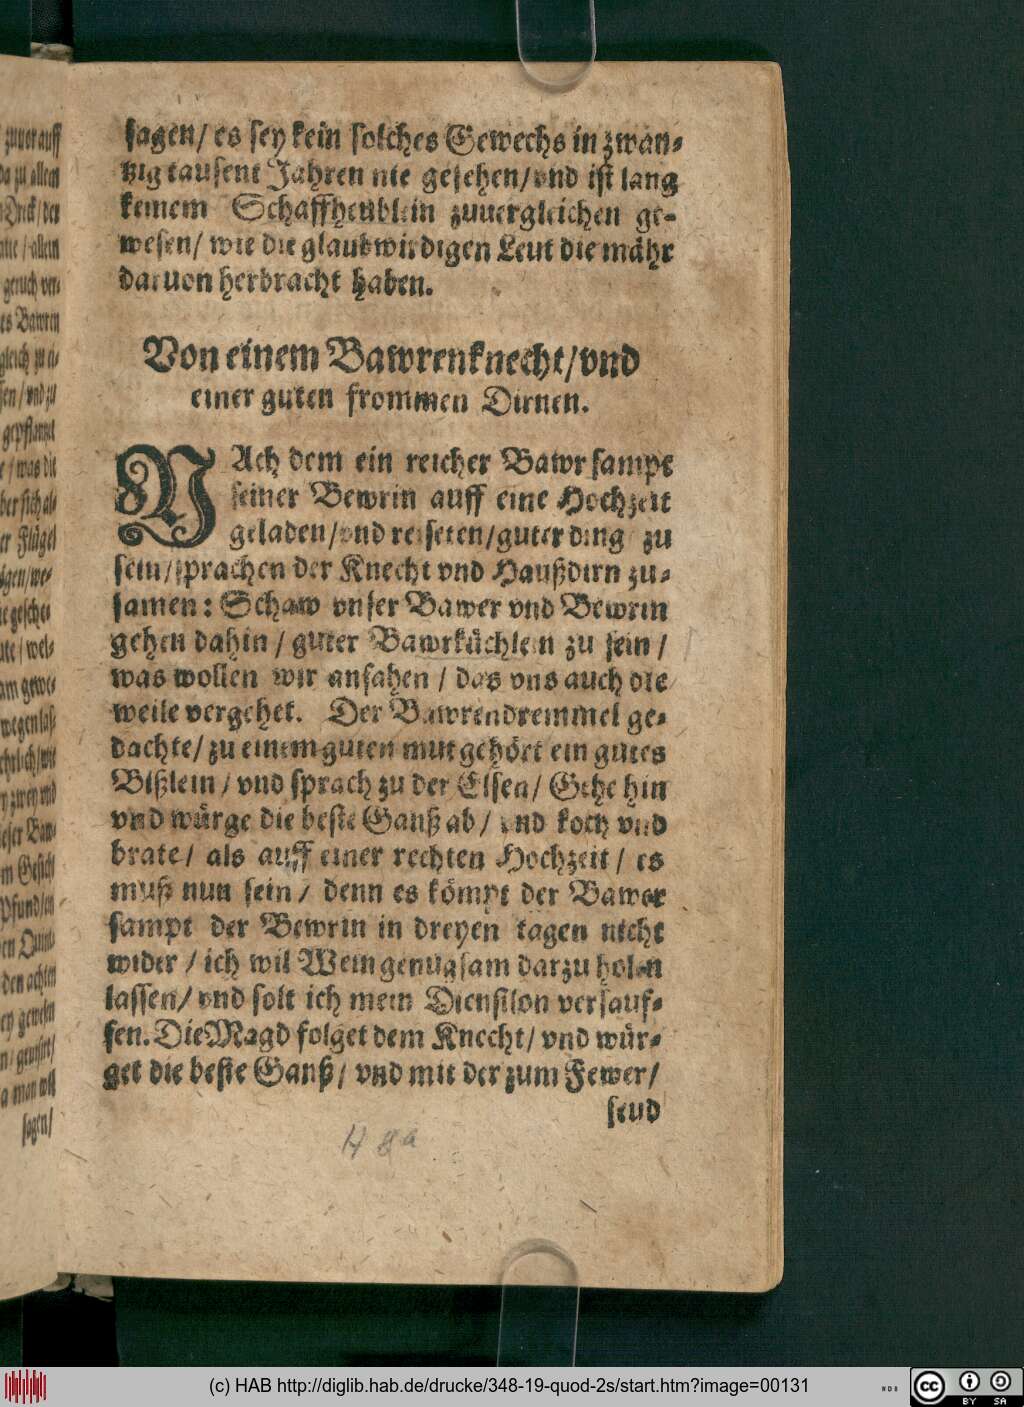 sagen/ es sey kein solches Gewechs in zwan-
tzig tausent Jahren nie gesehen/ vnd ist lang
keinem Schaffheublein zuuergleichen ge-
wesen/ wie die glaubwirdigen Leut die mähr
daruon herbracht haben.
Von einem Bawrenknecht/ vnd
einer guten frommen Dirnen.
NAch dem ein reicher Bawr sampt
seiner Bewrin auff eine Hochzeit
geladen/ vnd reiseten/ guter ding zu
sein/ sprachen der Knecht vnd Haußdirn zu-
samen: Schaw vnser Bawer vnd Bewrin
gehen dahin / guter Bawrküchlein zu sein /
was wollen wir anfahen / das vns auch die
weile vergehet. Der Bawrendremmel ge-
dachte/ zu einem guten mut gehört ein gutes
Bißlein / vnd sprach zu der Elsen/ Gehe hin
vnd würge die beste Ganß ab/ vnd koch vnd
brate/ als auff einer rechten Hochzeit / es
muß nun sein / denn es kömpt der Bawer
sampt der Bewrin in dreyen tagen nicht
wider / ich wil Wein genugsam darzu holen
lassen/ vnd solt ich mein Dienstlon versauf-
fen. Die Magd folget dem Knecht/ vnd wür-
get die beste Ganß/ vnd mit der zum Fewer/
seud
H 8a
zuuer auff
da zu allem
Dreck/ der
allein
geruch ver-
es Bawren
gleich zu
sen/ vnd zu
gepflantzt
was die
ber sich al-
er Flügel
igen/ we-
wel-
am gewe-
wegen laß
y zwey vnd
eser Baw-
m Gesicht
Pfund
den achten
ey gewesen
a man wil
sagen/
(c) HAB http://diglib.hab.de/drucke/348-19-quod-2s/start.htm?image=00131
cc BY SA